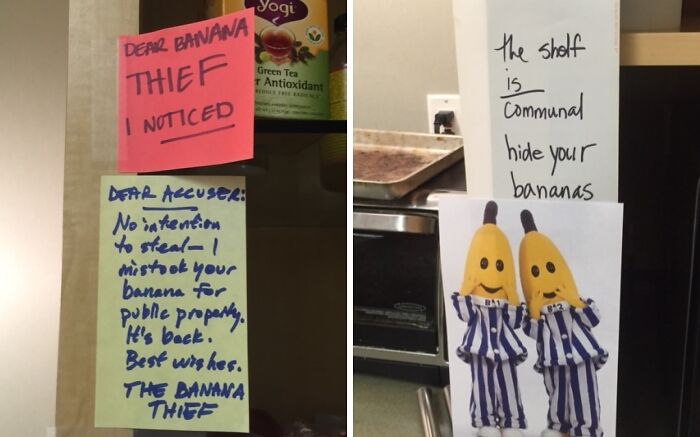 DEAR BANANA
THIEF
I NOTICED
yogi
Green Tea
Antioxidant
DEAR ACCUSER:
No intention
to steal - I
mistook your
banana for
public property.
It's back.
Best wishes.
THE BANANA
THIEF
the shelf
is
communal
hide your
bananas
B1
B2